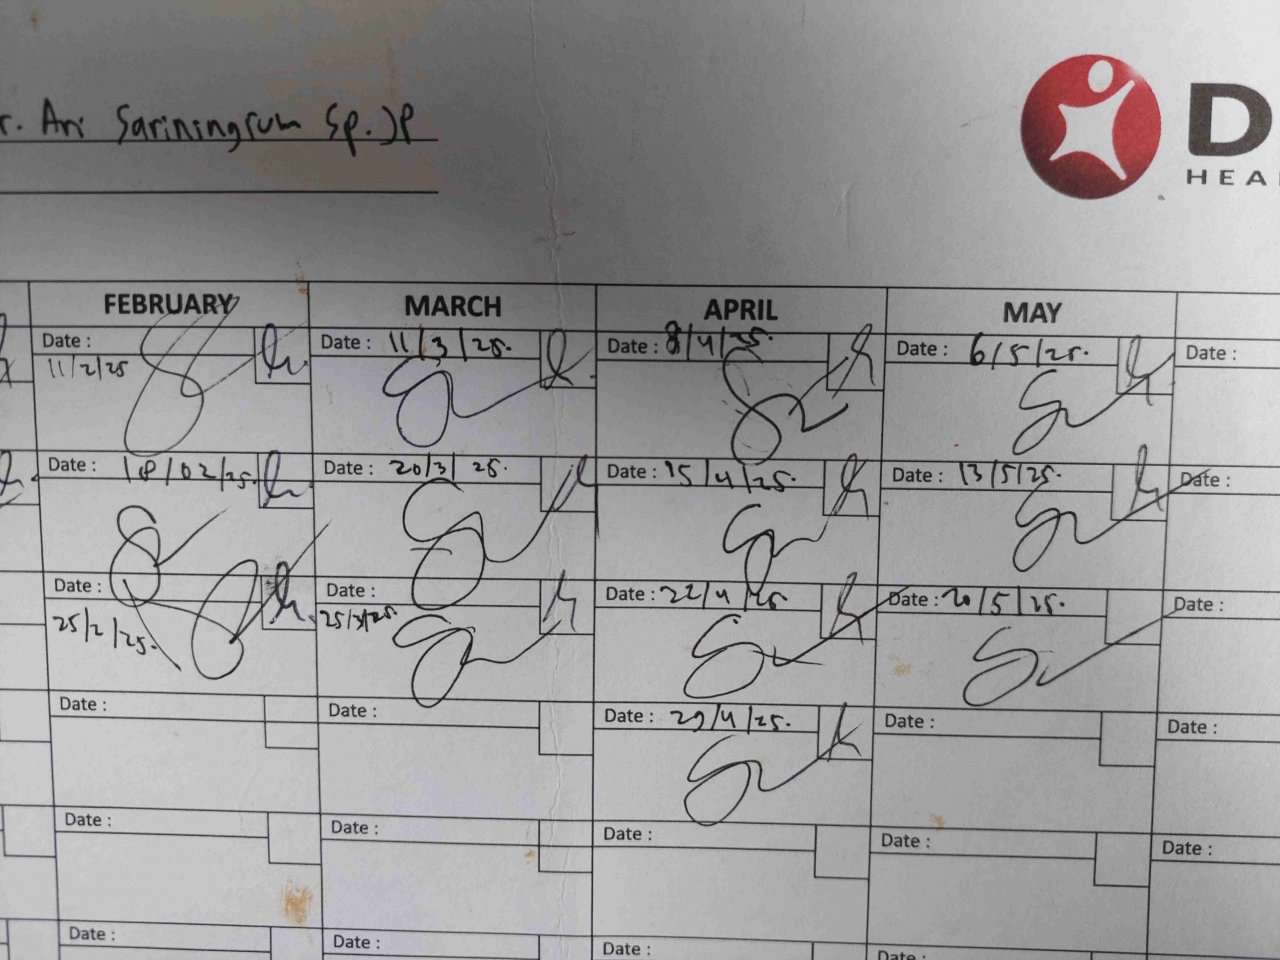 r. Ari Sariningrum Sp.JP
D
HEA
FEBRUARY MARCH APRIL MAY
Date : Date : 11/3/25. Date : 8/4/25. Date : 6/5/25. Date :
11/2/25
Date : 18/02/25. Date : 20/3/25. Date : 15/4/25. Date : 13/5/25. Date :
Date : Date : Date : 22/4/25 Date : 20/5/25. Date :
25/2/25. 25/3/25.
Date : Date : Date : 29/4/25. Date : Date :
Date : Date : Date : Date : Date :
Date : Date : Date : Date :